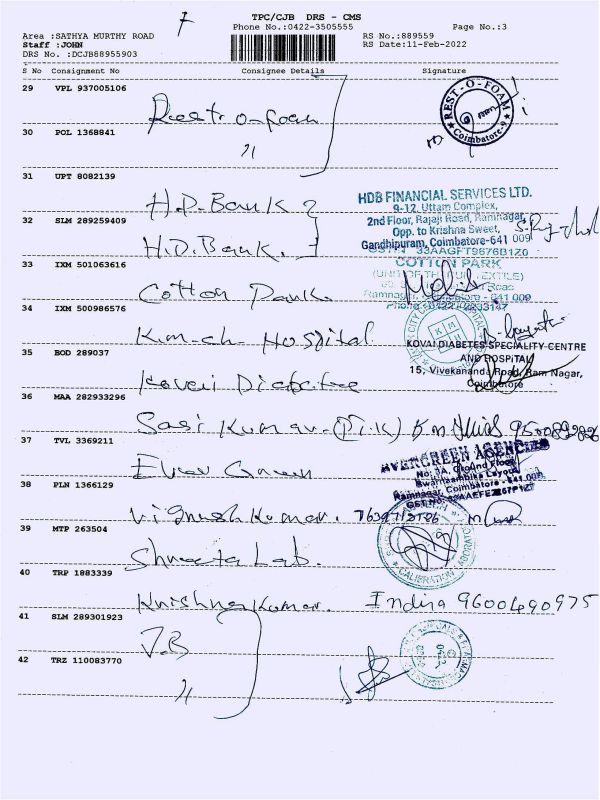 TPC/CJB DRS - CMS
Phone No.:0422-3505555 Page No.:3
Area :SATHYA MURTHY ROAD RS No.:889559
Staff :JOHN RS Date:11-Feb-2022
DRS No. :DCJB88955903
S No Consignment No Consignee Details Signature
29 VPL 937005106
Rest-o-foam
REST-O-FOAM Coimbatore-9
30 POL 1368841
"
31 UPT 8082139
H.D. Bank
HDB FINANCIAL SERVICES LTD.
9-12, Uttam Complex,
2nd Floor, Rajaji Road, Ramnagar,
Opp. to Krishna Sweet,
Gandhipuram, Coimbatore-641 009
32 SLM 289259409
H.D. Bank.
33AAGFT9876B1Z0
33 IXM 501063616
Cotton Park.
COTTON PARK
Ramnagar, Coimbatore - 641 009
34 IXM 500986576
K.m-ch Hospital
35 BOD 289037
Kovai Diabetee
KOVAI DIABETES SPECIALITY CENTRE
AND HOSPITAL
15, Vivekananda Road, Ram Nagar,
Coimbatore
36 MAA 282933296
Sasi Kumar
37 TVL 3369211
Ever Green
EVERGREEN AGENCIES
No: 3A, Ground Floor,
Swarnaambika Layout,
Ramnagar, Coimbatore - 641 009
38 PLN 1366129
Vignesh Kumar.
39 MTP 263504
Shreeta Lab.
CALIBRATION LABORATORY
40 TRP 1883339
Krishna Kumar. Indira 9600490975
41 SLM 289301923
J.B
42 TRZ 110083770
"